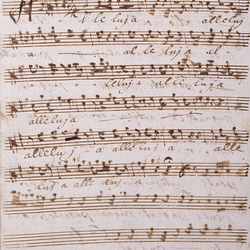 Alleluja alleluj
a al le luja al
leluja alle luja
alleluja
alleluj a alleluja alle
luja alle luja